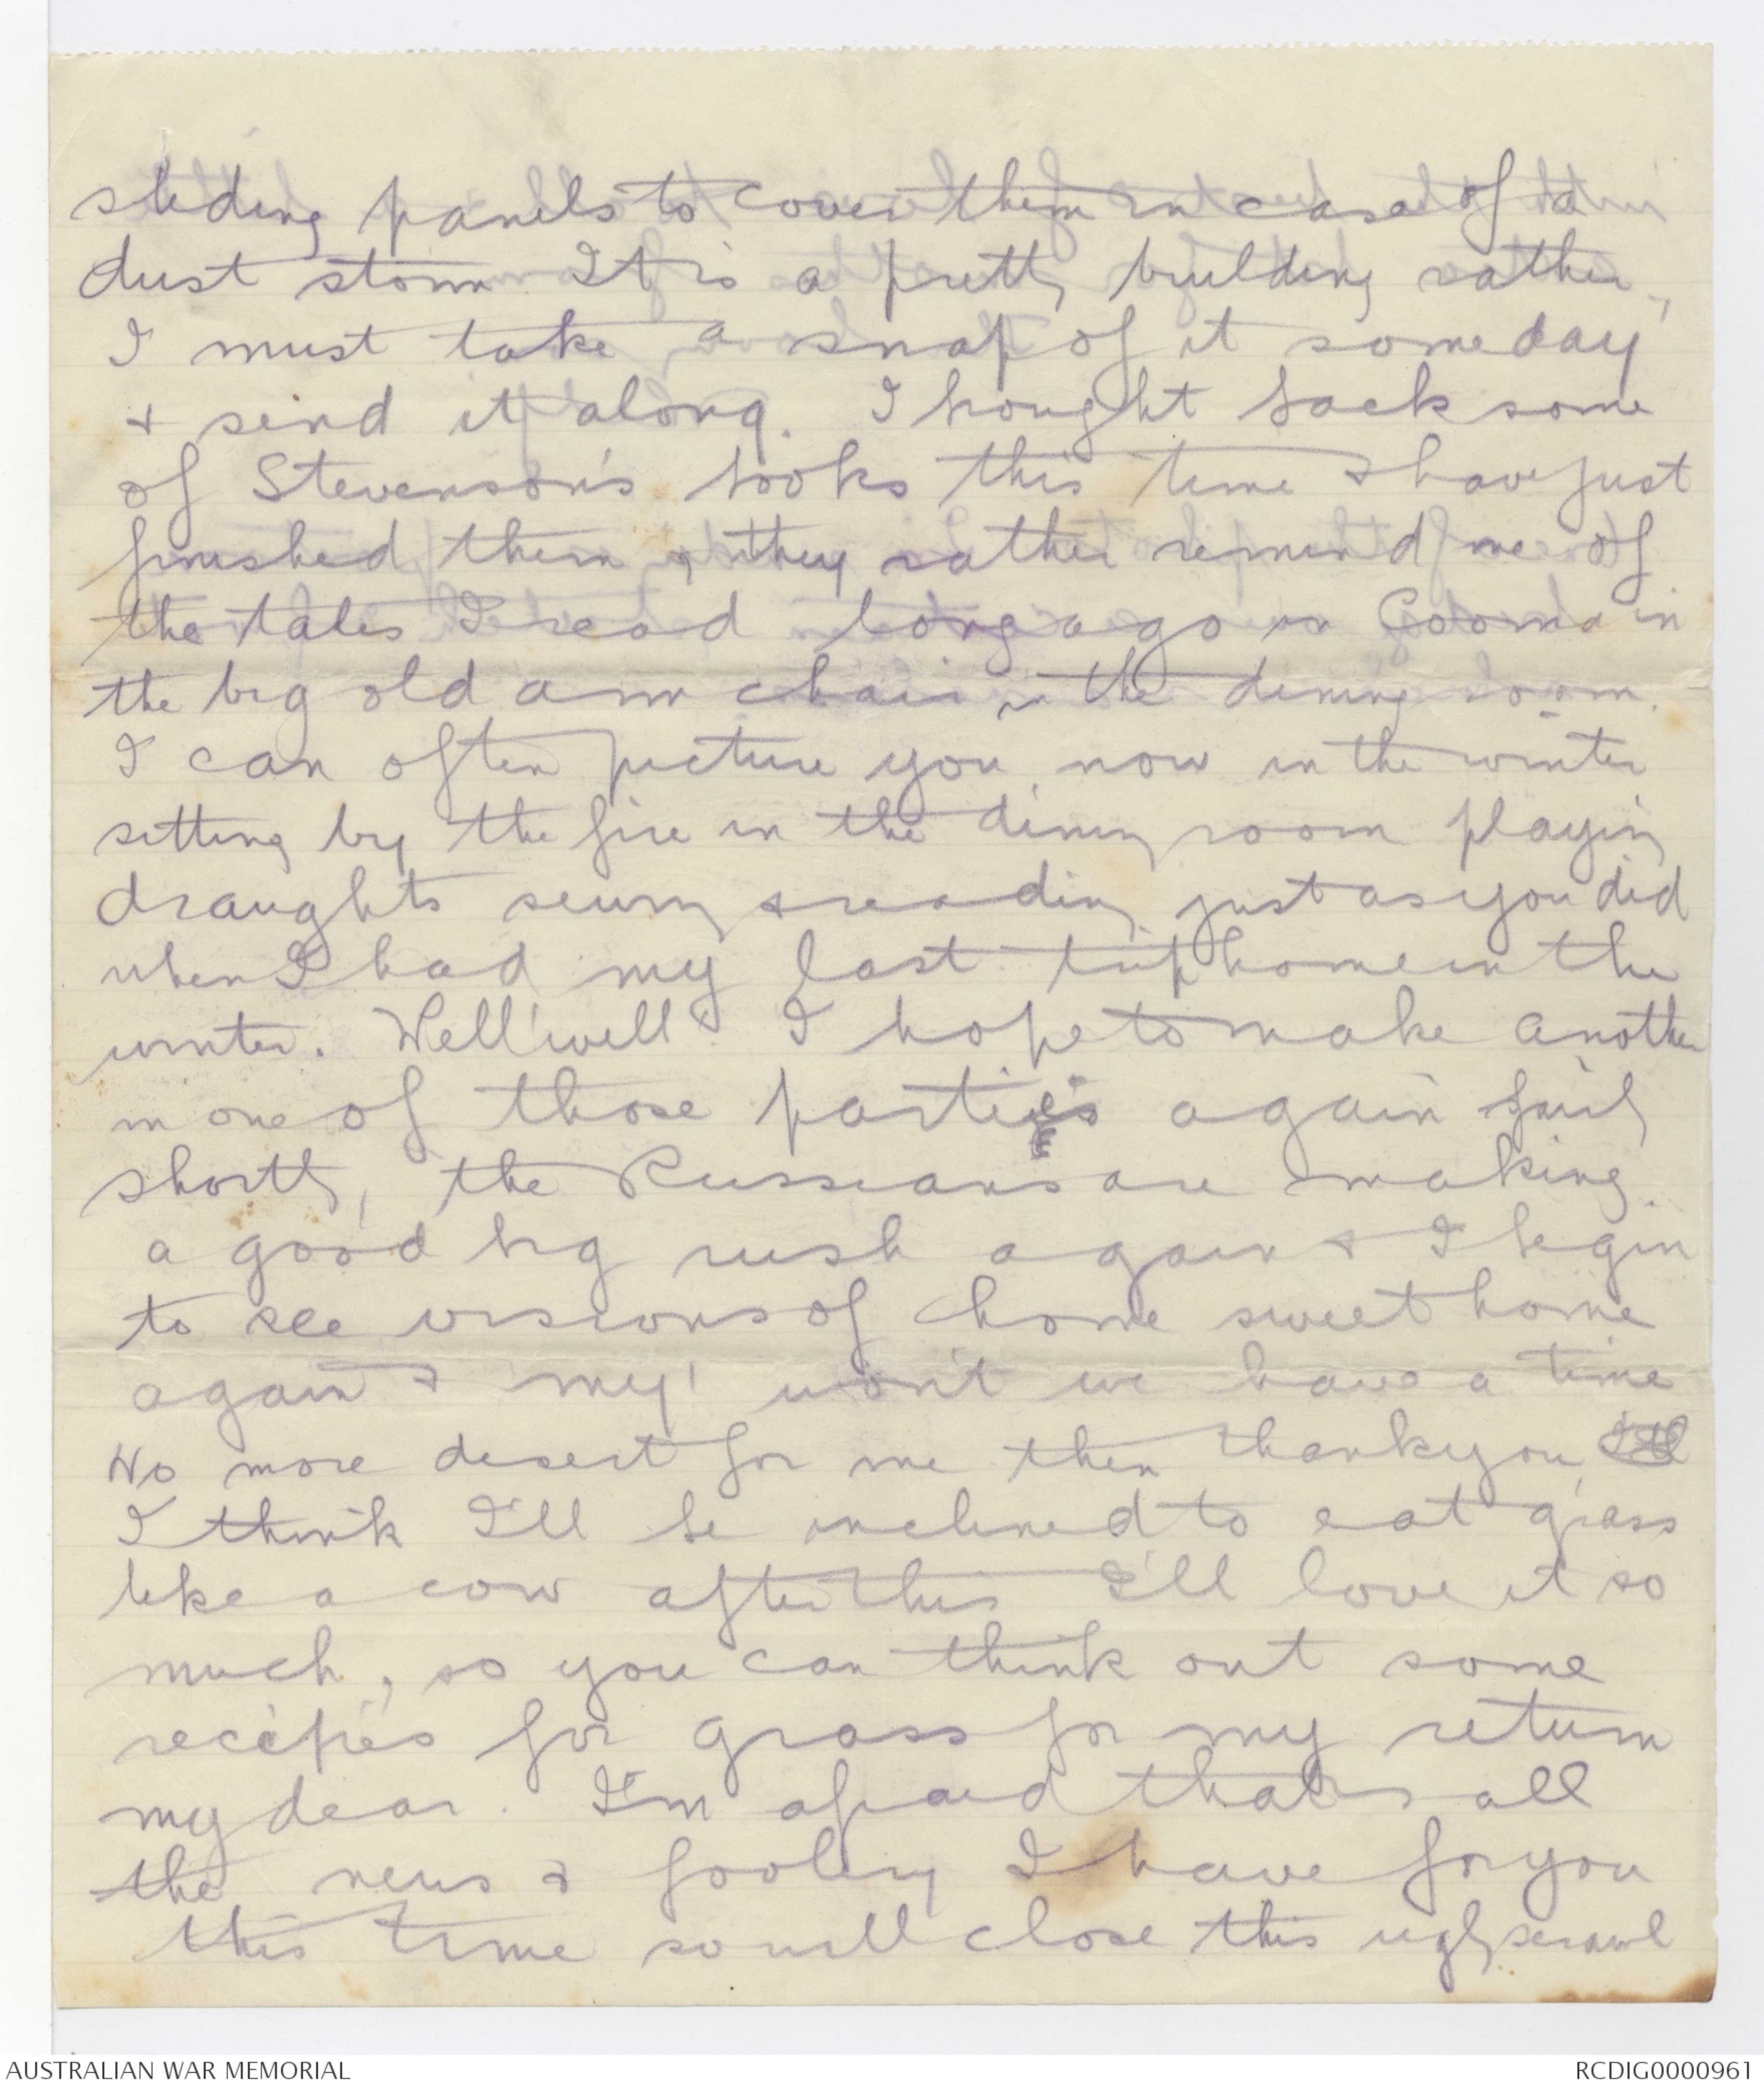 sliding panels to cover them in case of a
dust storm. It is a pretty building rather,
I must take a snap of it some day
& send it along. I bought back some
of Stevenson's books this time & have just
finished them, they rather remind me of
the tales I read long ago in Cooma in
the big old arm chair in the dining room.
I can often picture you now in the winter
sitting by the fire in the dining room playing
draughts sewing & reading just as you did
when I had my last trip home in the
winter. Well well I hope to make another
in one of those parties again fairly
shortly, the Russians are making
a good big rush again & I begin
to see visions of home sweet home
again & my! won't we have a time
No more desert for me then thankyou,
I think I'll be inclined to eat grass
like a cow after this I'll love it so
much, so you can think out some
recipes for grass for my return
my dear. I'm afraid that's all
the news & foolery I have for you
this time so will close this ugly scrawl
AUSTRALIAN WAR MEMORIAL
RCDIG0000961